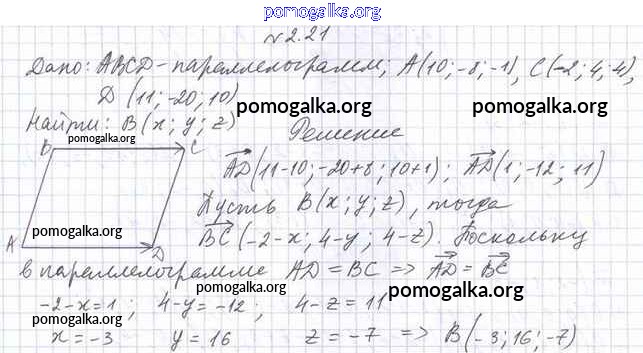 pomogalka.org
№2.21
Дано: ABCD - параллелограмм, A(10; -8; -1), C(-2; 4; 4),
D (11; -20; 10)
pomogalka.org pomogalka.org
Найти: B(x; y; z)
pomogalka.org
Решение
B C
AD(11-10; -20+8; 10+1); AD(1; -12; 11)
Пусть B(x; y; z), тогда
pomogalka.org
BC(-2-x; 4-y; 4-z). Поскольку
A D
в параллелограмме AD = BC => AD = BC
pomogalka.org
-2-x=1; 4-y=-12; 4-z=11
pomogalka.org
x=-3 y=16 z=-7 => B(-3; 16; -7)
pomogalka.org